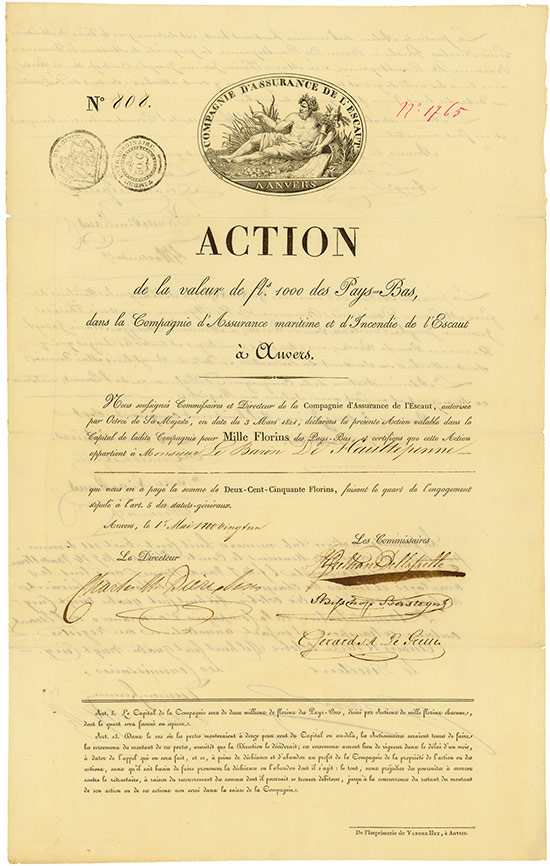 COMPAGNIE D'ASSURANCE DE L'ESCAUT
A ANVERS
N° 808.
N° 1765
ACTION
de la valeur de fls. 1000 des Pays-Bas,
dans la Compagnie d'Assurance maritime et d'Incendie de l'Escaut
à Anvers.
Nous soussignés Commissaires et Directeur de la Compagnie d'Assurance de l'Escaut, autorisée
par Octroi de Sa Majesté, en date du 3 Mars 1821, déclarons la présente Action valable dans le
Capital de ladite Compagnie pour Mille Florins des Pays-Bas, & certifions que cette Action
appartient à Monsieur Le Baron De
qui nous en a payé la somme de Deux-Cent-Cinquante Florins, faisant le quart de l'engagement
stipulé à l'art. 5 des statuts-généraux.
Anvers, le 1r Mai 1800 vingt un
Les Commissaires
Le Directeur
Gérard
Art. 5. Le Capital de la Compagnie sera de deux millions de florins des Pays-Bas, divisé par Actions de mille florins chacune,
dont le quart sera fourni en espèces.
Art. 13. Dans le cas où les pertes monteraient à douze pour cent du Capital ou au-delà, les Actionnaires seraient tenus de faire
les versemens du montant de ces pertes, aussitôt que la Direction le déciderait; ces versemens auront lieu de rigueur dans le délai d'un mois,
à dater de l'appel qui en sera fait, et ce, à peine de déchéance et d'abandon au profit de la Compagnie de la propriété de l'action ou des
actions, sans qu'il soit besoin de faire prononcer la déchéance ou l'abandon dont il s'agit: le tout, sans préjudice des poursuites à exercer
contre le retardataire, à raison du recouvrement des sommes dont il pourrait se trouver débiteur, jusqu'à la concurrence du restant du montant
de son action ou de ses actions non versé dans la caisse de la Compagnie.
De l'Imprimerie de VANDER HEY, à Anvers.